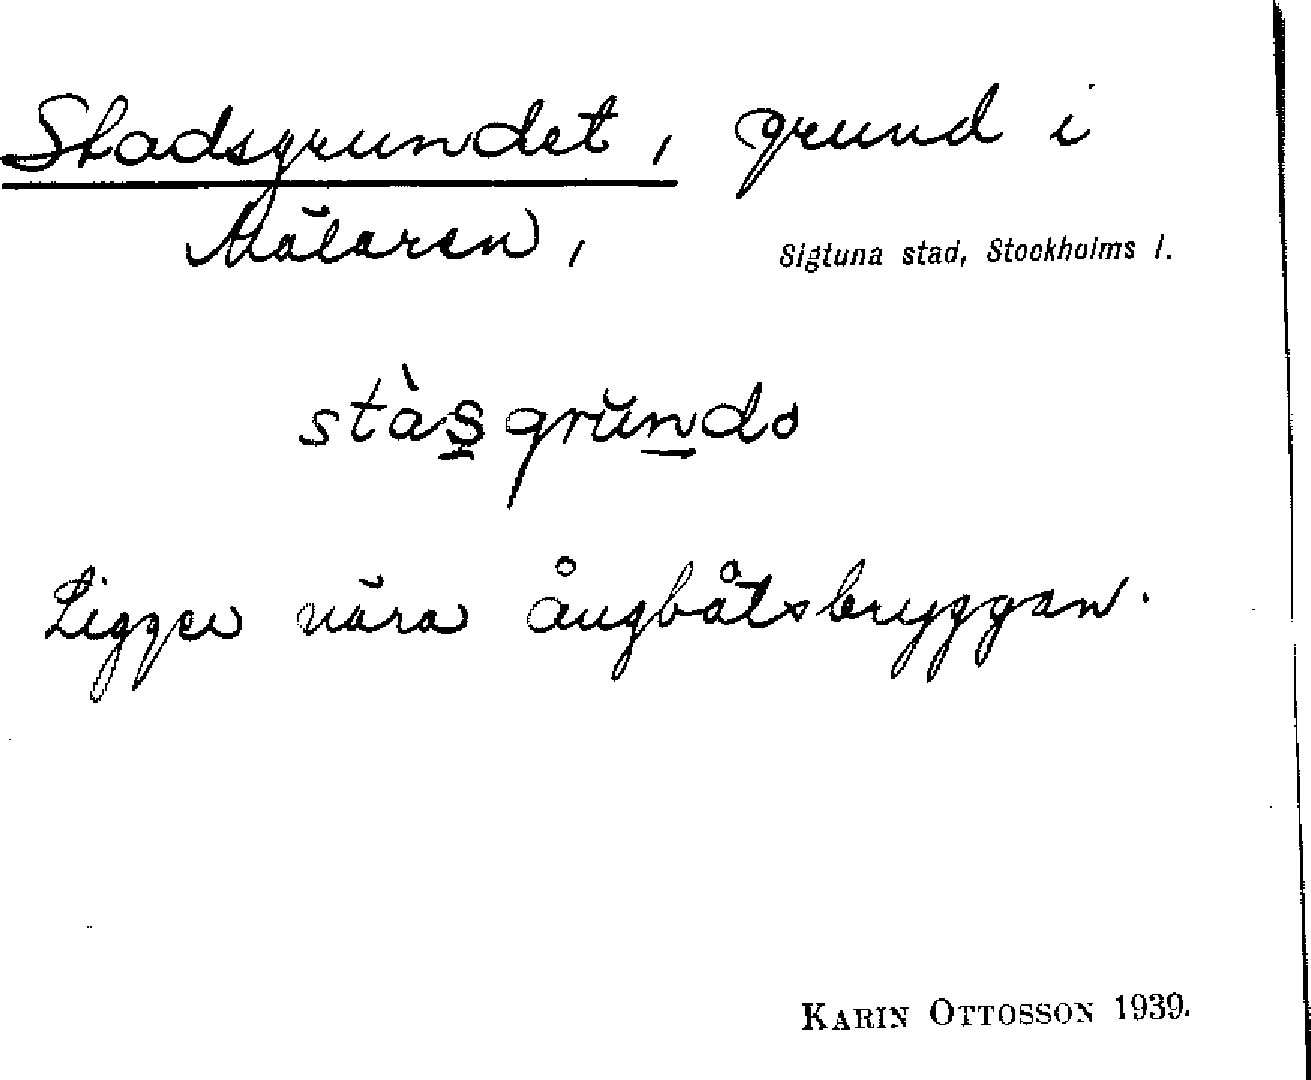 Stadsgrundet, grund i
Mälaren, Sigtuna stad, Stockholms l.
stàsgrŭndo
Ligger nära ångbåtsbryggan.
KARIN OTTOSSON 1939.